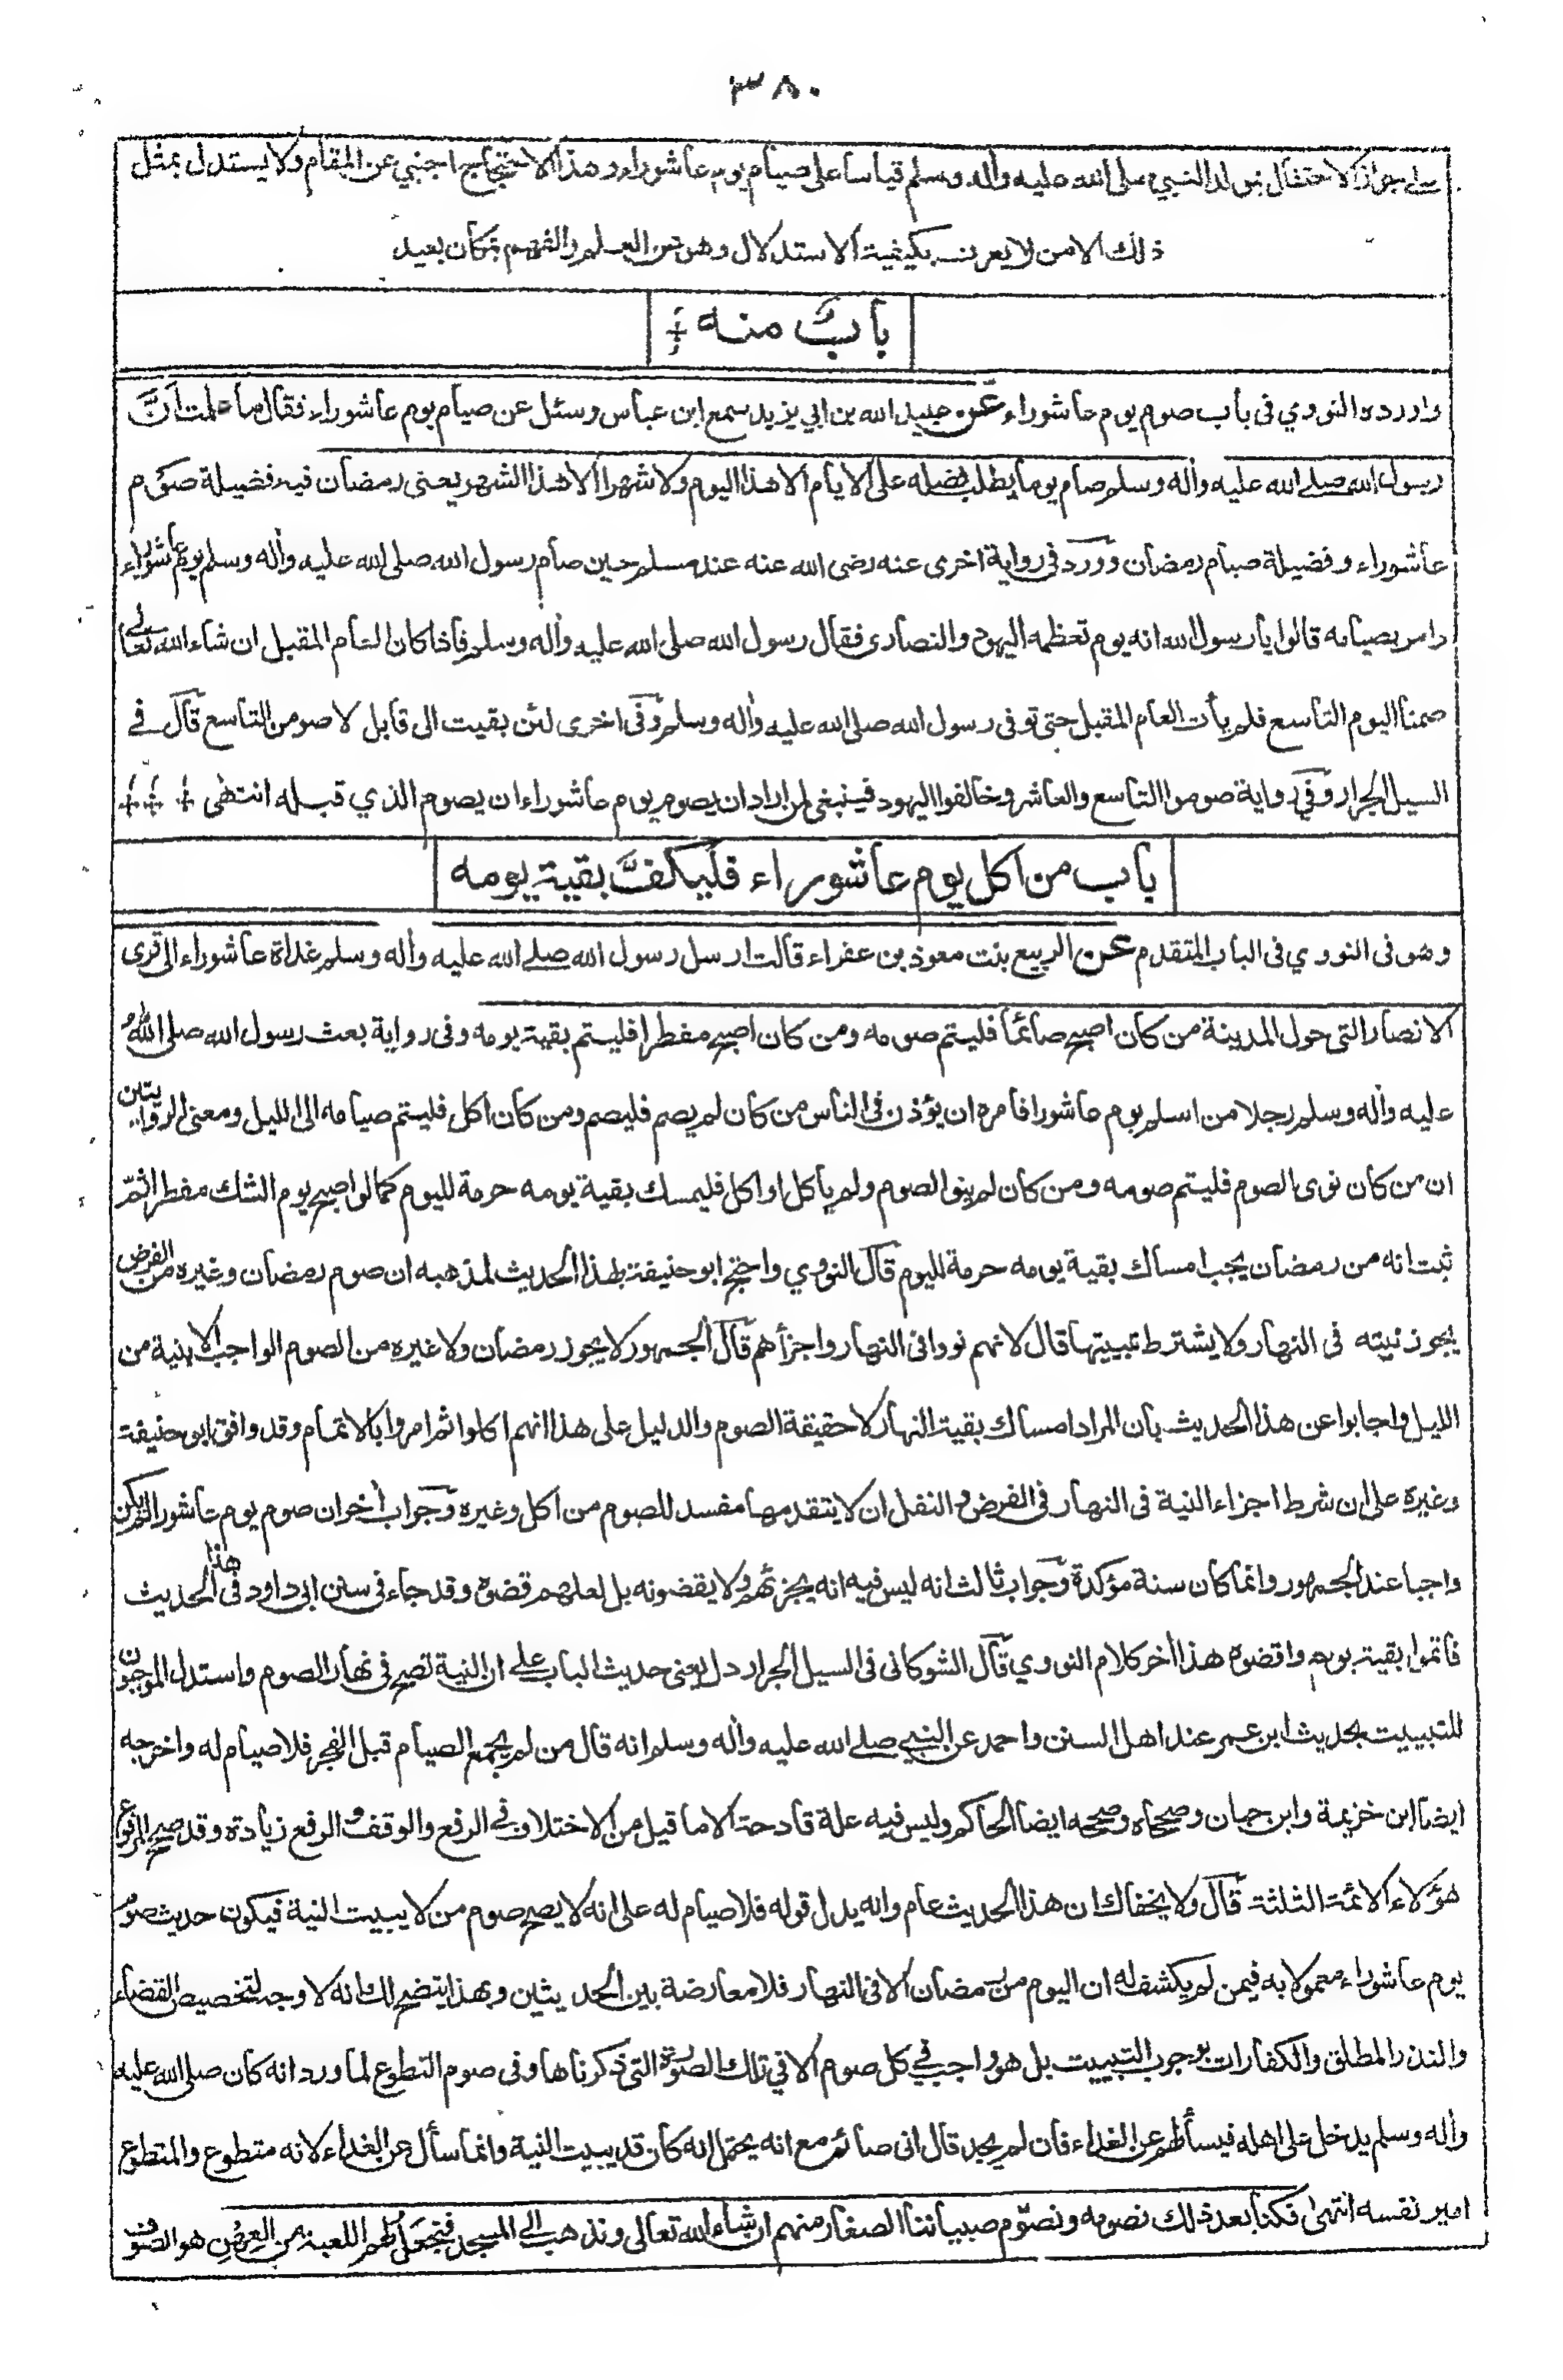 ٣٨٠
على جواز الاحتفال بمولد النبي صلى الله عليه وأله وسلم قياسا على صيام يوم عاشوراء وهذا الاحتجاج اجنبي عن المقام ولا يستدل بمثل
ذلك الا من لا يعرف بكيفية الاستدلال وهو من العلم والفهم بمكان بعيد
باب منه
واورده النووي فى باب صوم يوم عاشوراء عن عبيد الله بن ابي يزيد سمع ابن عباس وسئل عن صيام يوم عاشوراء فقال ما علمت انَّ
رسول الله صلے الله عليه وأله وسلم صام يوما يطلب فضله على الايام الا هذا اليوم ولا شهرا الا هذا الشهر يعنى رمضان فيه فضيلة صوم
عاشوراء وفضيلة صيام رمضان وورد فى رواية اخرى عنه رضى الله عنه عند مسلم حين صام رسول الله صلى الله عليه وأله وسلم يوم عاشوراء
وامر بصيامه قالوا يا رسول الله انه يوم تعظمه اليهود والنصارى فقال رسول الله صلى الله عليه وأله وسلم فاذا كان العام المقبل ان شاء الله تعالے
صمنا اليوم التاسع فلم يأت العام المقبل حتى توفى رسول الله صلى الله عليه وأله وسلم وفى اخرى لئن بقيت الى قابل لاصومن التاسع قال فے
السيل الجرار وفى رواية صوموا التاسع والعاشر وخالفوا اليهود فينبغى لمن اراد ان يصوم يوم عاشوراء ان يصوم الذي قبله انتهٰى
باب من اكل يوم عاشوراء فليكفَّ بقية يومه
وهو فى النووي فى الباب المتقدم عن الربيع بنت معوذ بن عفراء قالت ارسل رسول الله صلے الله عليه وأله وسلم غداة عاشوراء الى قرى
الانصار التى حول المدينة من كان اصبح صائما فليتم صومه ومن كان اصبح مفطرا فليتم بقية يومه وفى رواية بعث رسول الله صلى الله
عليه وأله وسلم رجلا من اسلم يوم عاشورا فامره ان يؤذن فى الناس من كان لم يصم فليصم ومن كان اكل فليتم صيامه الى الليل ومعنى الروايتين
ان من كان نوى الصوم فليتم صومه ومن كان لم ينو الصوم ولم يأكل او اكل فليمسك بقية يومه حرمة لليوم كما لو اصبح يوم الشك مفطرا ثمّ
ثبت انه من رمضان يجب امساك بقية يومه حرمة لليوم قال النووي واحتج ابو حنيفة بهذا الحديث لمذهبه ان صوم رمضان وغيره من الفرض
يجوز نيته فى النهار ولا يشترط تبييتها قال لانهم نووا فى النهار واجزأهم قال الجمهور لا يجوز رمضان ولا غيره من الصوم الواجب الا بنية من
الليل واجابوا عن هذا الحديث بان المراد امساك بقية النهار لا حقيقة الصوم والدليل على هذا انهم اكلوا ثم امروا بالاتمام وقد وافق ابو حنيفة
وغيره على ان شرط اجزاء النية فى النهار فى الفرض و النفل ان لا يتقدمها مفسد للصوم من اكل وغيره وجواب أخر ان صوم يوم عاشورا لم يكن
واجبا عند الجمهور وانما كان سنة مؤكدة وجواب ثالث انه ليس فيه انه يجزئهم ولا يقضونه بل لعلهم قضوه وقد جاء فى سنن ابى داود فى هذا الحديث
فاتموا بقية يومه واقضوه هذا أخر كلام النووي قال الشوكانى فى السيل الجرار دل يعنى حديث الباب على ان النية تصح فى نهار الصوم واستدل الموجبون
للتبييت بحديث ابن عمر عند اهل السنن واحمد عن النبي صلے الله عليه وأله وسلم انه قال من لم يجمع الصيام قبل الفجر فلا صيام له واخرجه
ايضا ابن خزيمة وابن حبان وصححاه وصححه ايضا الحاكم وليس فيه علة قادحة الا ما قيل من الاختلاف فے الرفع والوقف والرفع زيادة وقد صحح المرفوع
هؤلاء الائمة الثلثة قال ولا يخفاك ان هذا الحديث عام وانه يدل قوله فلا صيام له على انه لا يصح صوم من لا يبيت النية فيكون حديث صوم
يوم عاشوراء معمولا به فيمن لم يكشف له ان اليوم من رمضان الا فى النهار فلا معارضة بين الحديثين وبهذا يتضح لك انه لا وجه لتخصيص القضاء
والنذر المطلق والكفارات بوجوب التبييت بل هو واجب فے كل صوم الا فى تلك الصورة التى ذكرناها وفى صوم التطوع لما ورد انه كان صلى الله عليه
وأله وسلم يدخل على اهله فيسألهم عن الغداء فان لم يجد قال انى صائم مع انه يحتمل انه كان قد يبيت النية وانما سأل عن الغداء لانه متطوع والمتطوع
امير نفسه انتهىٰ فكنا بعد ذلك نصومه ونصوّم صبياننا الصغار منهم ان شاء الله تعالى ونذهب الى المسجد فنجعل لهم اللعبة من العِهْنِ هو الصوف